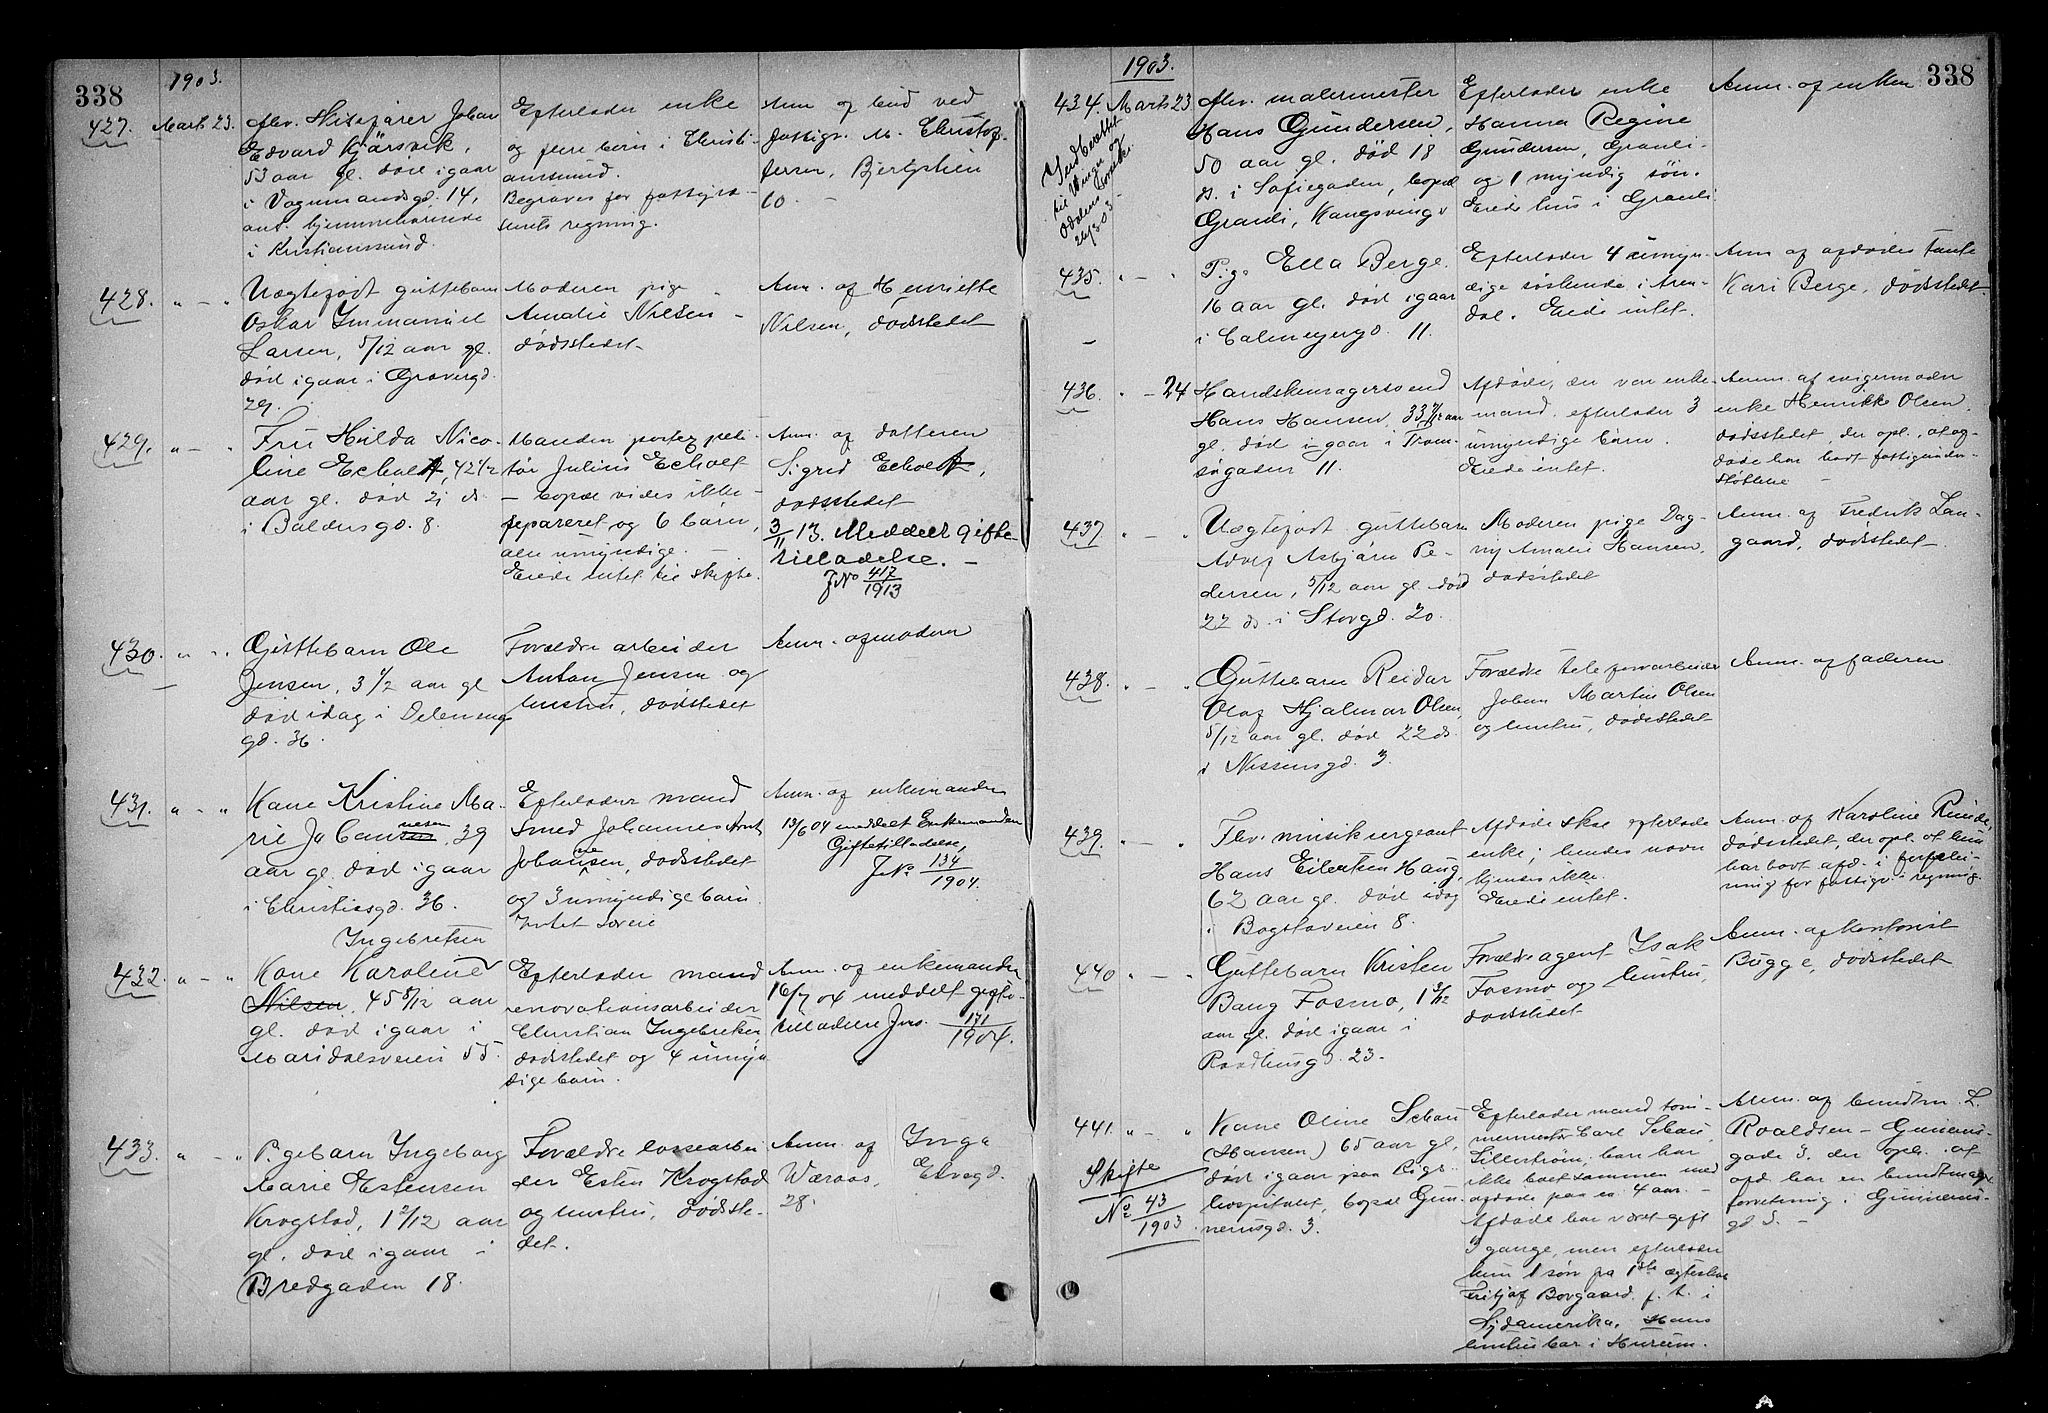 338
1903.
427. Marts 23. Flv. Johan
Edvard
53 aar gl. død igaar
i Vognmandsgd. 14,
ant. hjemmehørende
i Kristianssund.
Efterlader enke
og flere børn i Christi-
anssund.
Begraves for fattigvæ-
senets regning.
Anm. af bud ved
fattigv. M. Christof-
fersen, Bjergstien
10.
428. " - " Uægtefødt guttebarn
Oskar Immanuel
Larsen, 5/12 aar gl.
død igaar i Gravergd.
29.
Moderen pige
Amalie Nilsen -
dødsstedet
Anm. af Henriette
Nilsen, dødsstedet
429. " - " Fru Hulda Nico-
line Echolt, 42 1/2
aar gl. død 21 ds.
i Baldersgd. 8.
Manden
tør Julius Echolt
- bopæl vides ikke -
separeret og 6 børn,
alle umyndige. -
Eiede intet til skifte.
Anm. af datteren
Sigrid Echolt,
dødsstedet
3/11 13. Meddelt gifte-
tilladelse. -
JNo 417/1913
430. " - " Guttebarn Ole
Jensen, 3 1/2 aar gl
død idag i Deleneng
gd. 36.
Forældre arbeider
Anton Jensen og
hustru, dødsstedet
Anm. af moderen
431. " - " Kone Kristine Ma-
rie , 39
aar gl. død igaar
i Christiesgd. 36.
Efterlader mand
Smed Johannes Arnt
Johannesen, dødsstedet
og 3 umyndige børn
Intet
Anm. af enkemanden
13/6 04 meddelt Enkemanden
Giftetilladelse,
JNo. 134/1904.
432. " - " Kone Karoline Ingebretsen
Nilsen, 45 8/12 aar
gl. død igaar i
Maridalsveien 55.
Efterlader mand
renovationsarbeider
Christian Ingebretsen,
dødsstedet og 4 umyn
dige børn.
Anm. af enkemanden
16/7 04 meddelt gifte-
tilladelse Jno. 171/1904.
433. " - " Pigebarn Ingeborg
Marie Estensen
Krogstad, 1 2/12 aar
gl. død igaar i
Bredgaden 18.
Forældre lossearbei
der Esten Krogstad
og hustru, dødsste-
det.
Anm. af Inga
Waraas, Elvegd.
28.
1903.
338
434. Marts 23
Send beretter
til Vinger og
Odalens Sorenskr.
26/3 03
flv. malermester
Hans Gundersen,
50 aar gl. død 18
ds. i Sofiegaden, bopæl
Granli, Kongsvinger
Efterlader enke
Hanna Regine
Gundersen, Granli
og 1 myndig søn.
Eiede hus i Granli
Anm. af enken
435. " - " Pige Ella Berge
16 aar gl. død igaar
i Calmeyergd. 11.
Efterlader 4 umyn-
dige søskende i Aren-
dal. Eiede intet.
Anm. af afdødes Tante
Kari Berge, dødsstedet.
436. " - 24 Handskemagersvend
Hans Hansen, 33 aar
gl. død igaar i Trom-
søgaden 11.
Afdøde, der var enke-
mand, efterlader 3
umyndige børn.
Eiede intet.
Anm. af svigermoder
enke Henrikke Olsen,
dødsstedet, der opl. at af-
døde har havt fattigunder-
støttelse -
437 " - " Uægtefødt guttebarn
Adolf Asbjørn Pe-
dersen, 5/12 aar gl. død
22 ds. i Storgd. 20.
Moderen pige Dag-
ny Amalie Hansen,
dødsstedet
Anm. af Fredrik Lan-
gaard, dødsstedet
438. " - " Guttebarn Reidar
Olaf Hjalmar Olsen,
5/12 aar gl. død 22 ds.
i Nissensgd. 3.
Forældre telefonarbeider
Johan Martin Olsen
og hustru, dødsstedet
Anm. af faderen
439. " - " Flv. musiksergeant
Hans Eilertsen Haug,
62 aar gl. død idag
i Bogstadveien 8.
Afdøde skal efterlade
enke; hendes navn
kjendes ikke.
Eiede intet.
Anm. af Karoline Runde,
dødsstedet, der opl. at hun
har havt afd. i forplei-
ning for fattigv. regning.
440 " - " Guttebarn Kristen
Bang Fosmo, 1 3/12
aar gl. død igaar i
Raadhusgd. 23.
Forældre agent Isak
Fosmo og hustru,
dødsstedet
Anm. af kontorist
Bugge, dødsstedet
441. " - "
Skifte
No 43/1903
Kone Oline Schau
(Hansen) 65 aar gl,
død igaar paa Rigs-
hospitalet, bopæl Gun-
nerusgd. 3.
Efterlader mand tøm-
mermester Carl Schau,
Lillestrøm; han har
ikke boet sammen med
afdøde paa ca. 4 aar. -
Afdøde har været gift
3 gange, men efterlader
kun 1 søn fra 1ste ægteskab
Fritjof Borgaard, f. t. i
Sydamerika. Hans
hustru bor i Hurum.
Anm. af bundtm. L.
Roaldsen - Gunnerus-
gade 3, der opl. at
afd. har en bundtmager-
forretning, Gunnerus-
gd 5. -